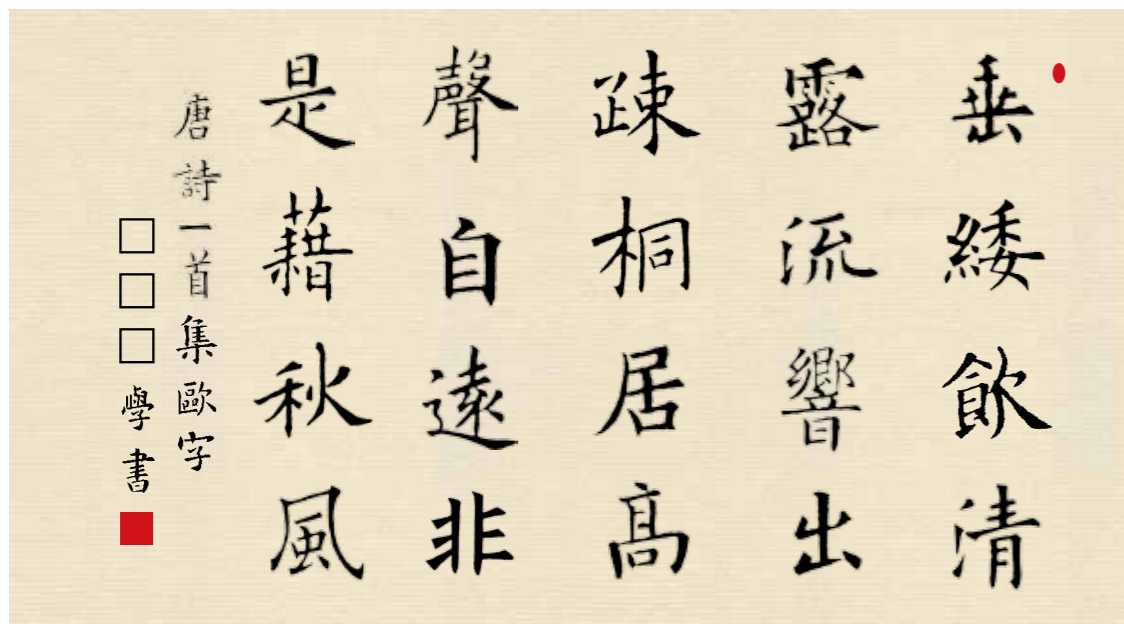 垂綏飲清
露流響出
疎桐居高
聲自遠非
是藉秋風
唐詩一首集歐字
□□□學書